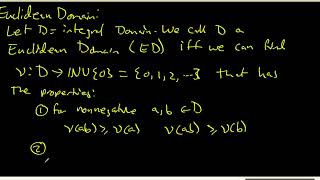 Euclidean Domain:
Let D = integral Domain. We call D a
Euclidean Domain (ED) iff we can find
ν: D → INU{0} = {0, 1, 2, ...} that has
the properties:
① for nonnegative a, b ∈ D
ν(ab) ≥ ν(a) ν(ab) ≥ ν(b)
②